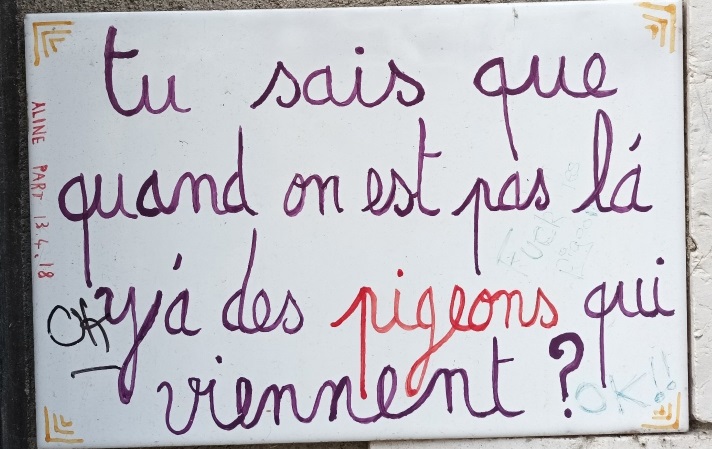 tu sais que
quand on est pas lá
yjá des pigeons qui
viennent ?
ALINE PART 13.4.18
OK
FUCK
OK!!